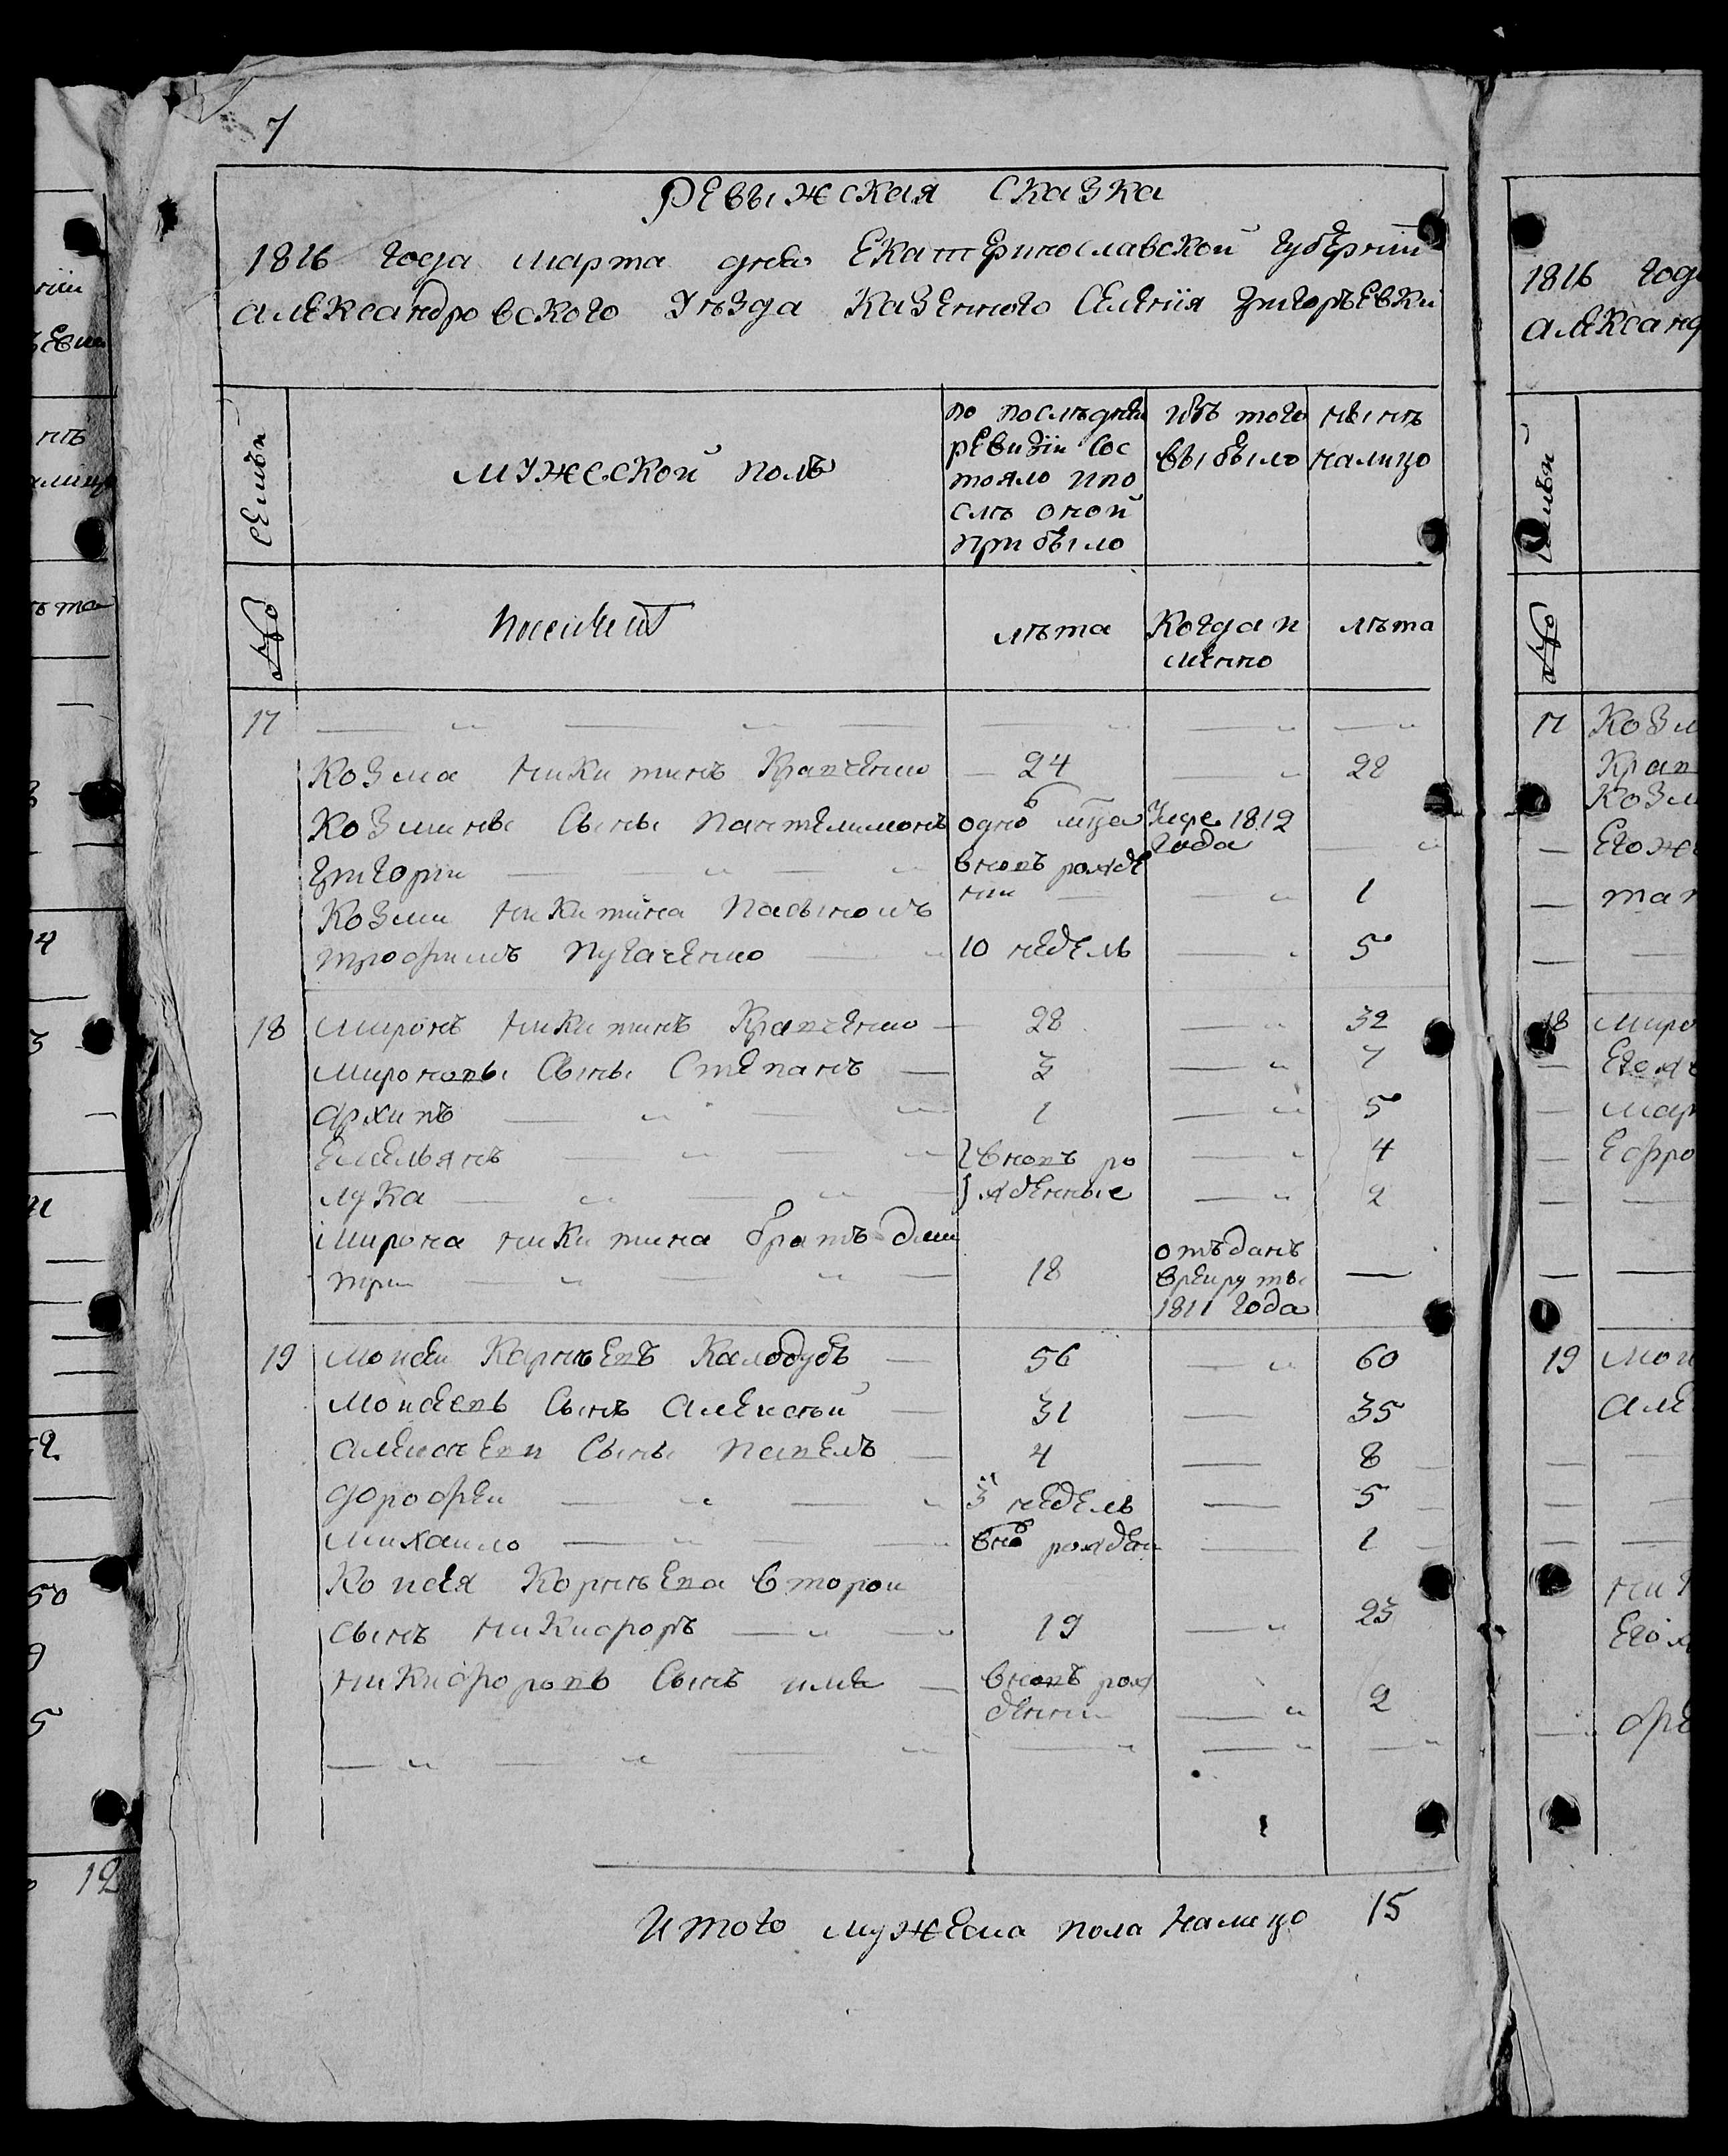 7
РЕвыжская сказка
1816 года марта дня Екатеринославской губернии
александровского Уѣзда Казенного Селенія григорьевки
семьи
мужеской полъ
по послѣднѣй ревизіи сос тояло ипо слѣ оной прибыло
изъ того выбыло
нынѣ налицо
№
лѣта
Когда и мянно
лѣта
17
Козма никитинъ Крапченко 24 28
Козмины Сыны пантелимонъ одно мца Умре 1812 года
григории вновь рожде нии 1
Козми никитина пасынокъ
трофимъ пугаченко 10 недель 5
18 миронъ никитинъ Крапченко 28 32
мироновы Сыны Степанъ 3 7
архипъ 1 5
Емельянъ вновь ро 4
лука жденные 2
мирона никитина братъ дми
трии 18 отъданъ врекруты 1811 года
19 моисеи Карнѣевъ Калобдубъ 56 60
моисеевъ Сынъ алексѣй 31 35
алексѣеви Сыны павелъ 4 8
дорофеи 5 недель 5
михаило внов рожден 1
моисея Корнѣева второи
сынъ никифоръ 19 23
никифоровъ Сынъ илья вновь рож денни 2
Итого мужеска пола налицо 15
1816 года
александ
17 Козм
Крап
Козм
Его же
тат
18 миро
Его же
мар
Ефро
19 мои
але
ник
Его ж
фре
12